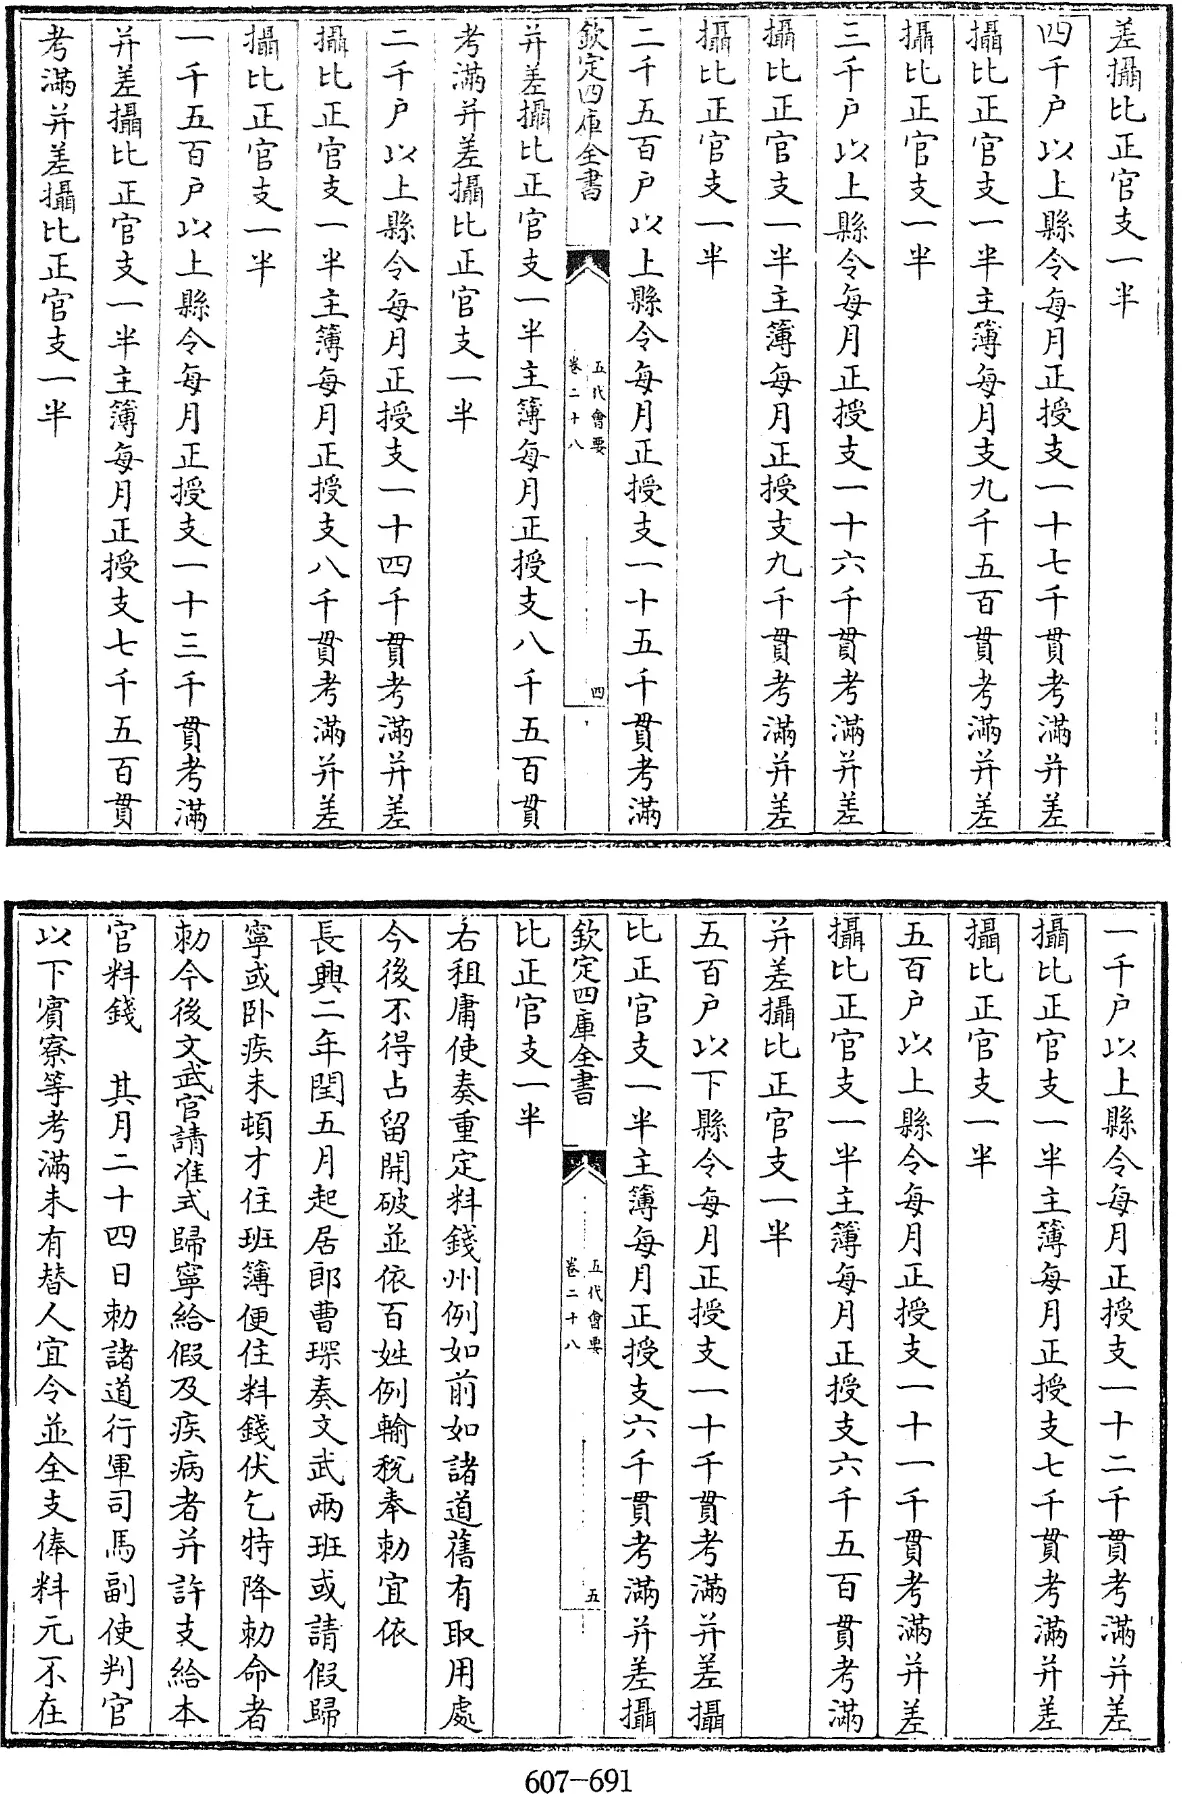 差攝比正官支一半
四千戸以上縣令每月正授支一十七千貫考滿并差
攝比正官支一半主簿每月支九千五百貫考滿并差
攝比正官支一半
三千戸以上縣令每月正授支一十六千貫考滿并差
攝比正官支一半主簿每月正授支九千貫考滿并差
攝比正官支一半
二千五百戸以上縣令每月正授支一十五千貫考滿
欽定四庫全書
五代會要
卷二十八
四
并差攝比正官支一半主簿每月正授支八千五百貫
考滿并差攝比正官支一半
二千戸以上縣令每月正授支一十四千貫考滿并差
攝比正官支一半主簿每月正授支八千貫考滿并差
攝比正官支一半
一千五百戸以上縣令每月正授支一十三千貫考滿
并差攝比正官支一半主簿每月正授支七千五百貫
考滿并差攝比正官支一半
一千戸以上縣令每月正授支一十二千貫考滿并差
攝比正官支一半主簿每月正授支七千貫考滿并差
攝比正官支一半
五百戸以上縣令每月正授支一十一千貫考滿并差
攝比正官支一半主簿每月正授支六千五百貫考滿
并差攝比正官支一半
五百戸以下縣令每月正授支一十千貫考滿并差攝
比正官支一半主簿每月正授支六千貫考滿并差攝
欽定四庫全書
五代會要
卷二十八
五
比正官支一半
右租庸使奏重定料錢州例如前如諸道舊有取用處
今後不得占留開破並依百姓例輸税奉勅宜依
長興二年閏五月起居郎曹琛奏文武兩班或請假歸
寧或卧疾未頓才住班簿便住料錢伏乞特降勅命者
勅今後文武官請准式歸寧給假及疾病者并許支給本
官料錢　其月二十四日勅諸道行軍司馬副使判官
以下賓寮等考滿未有替人宜令並全支俸料元不在
607-691